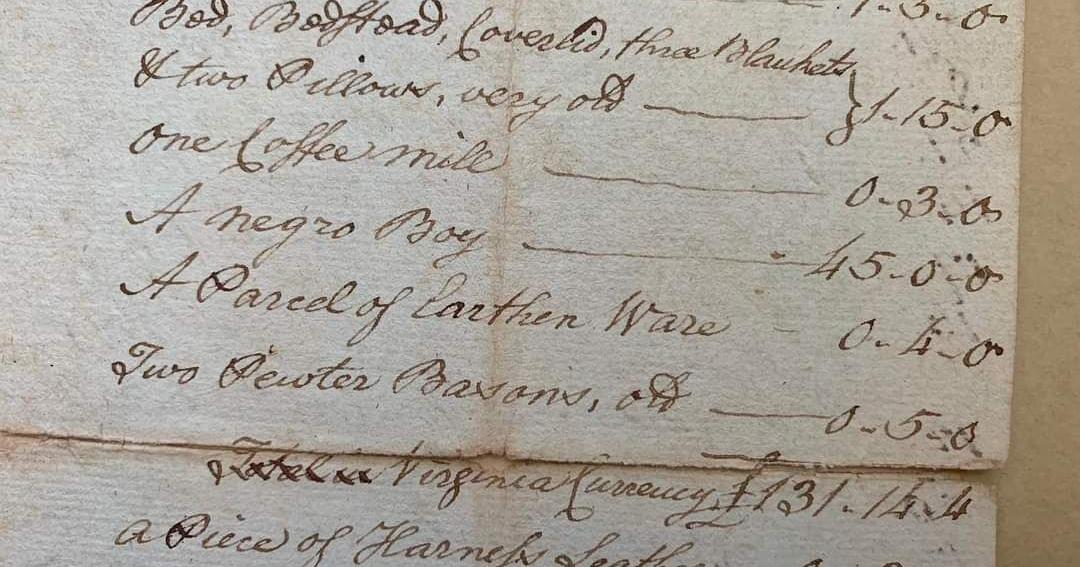 1-3-0
Bed, Bedstead, Coverlid, three Blankets
& two Pillows, very old } 1-15-0
one Coffee mill 0-3-0
A negro Boy 45-0-0
A Parcel of Earthen Ware 0-4-0
Two Pewter Basons, old 0-5-0
Total in Virginia Currency £131-14-4
a Piece of Harness Leather